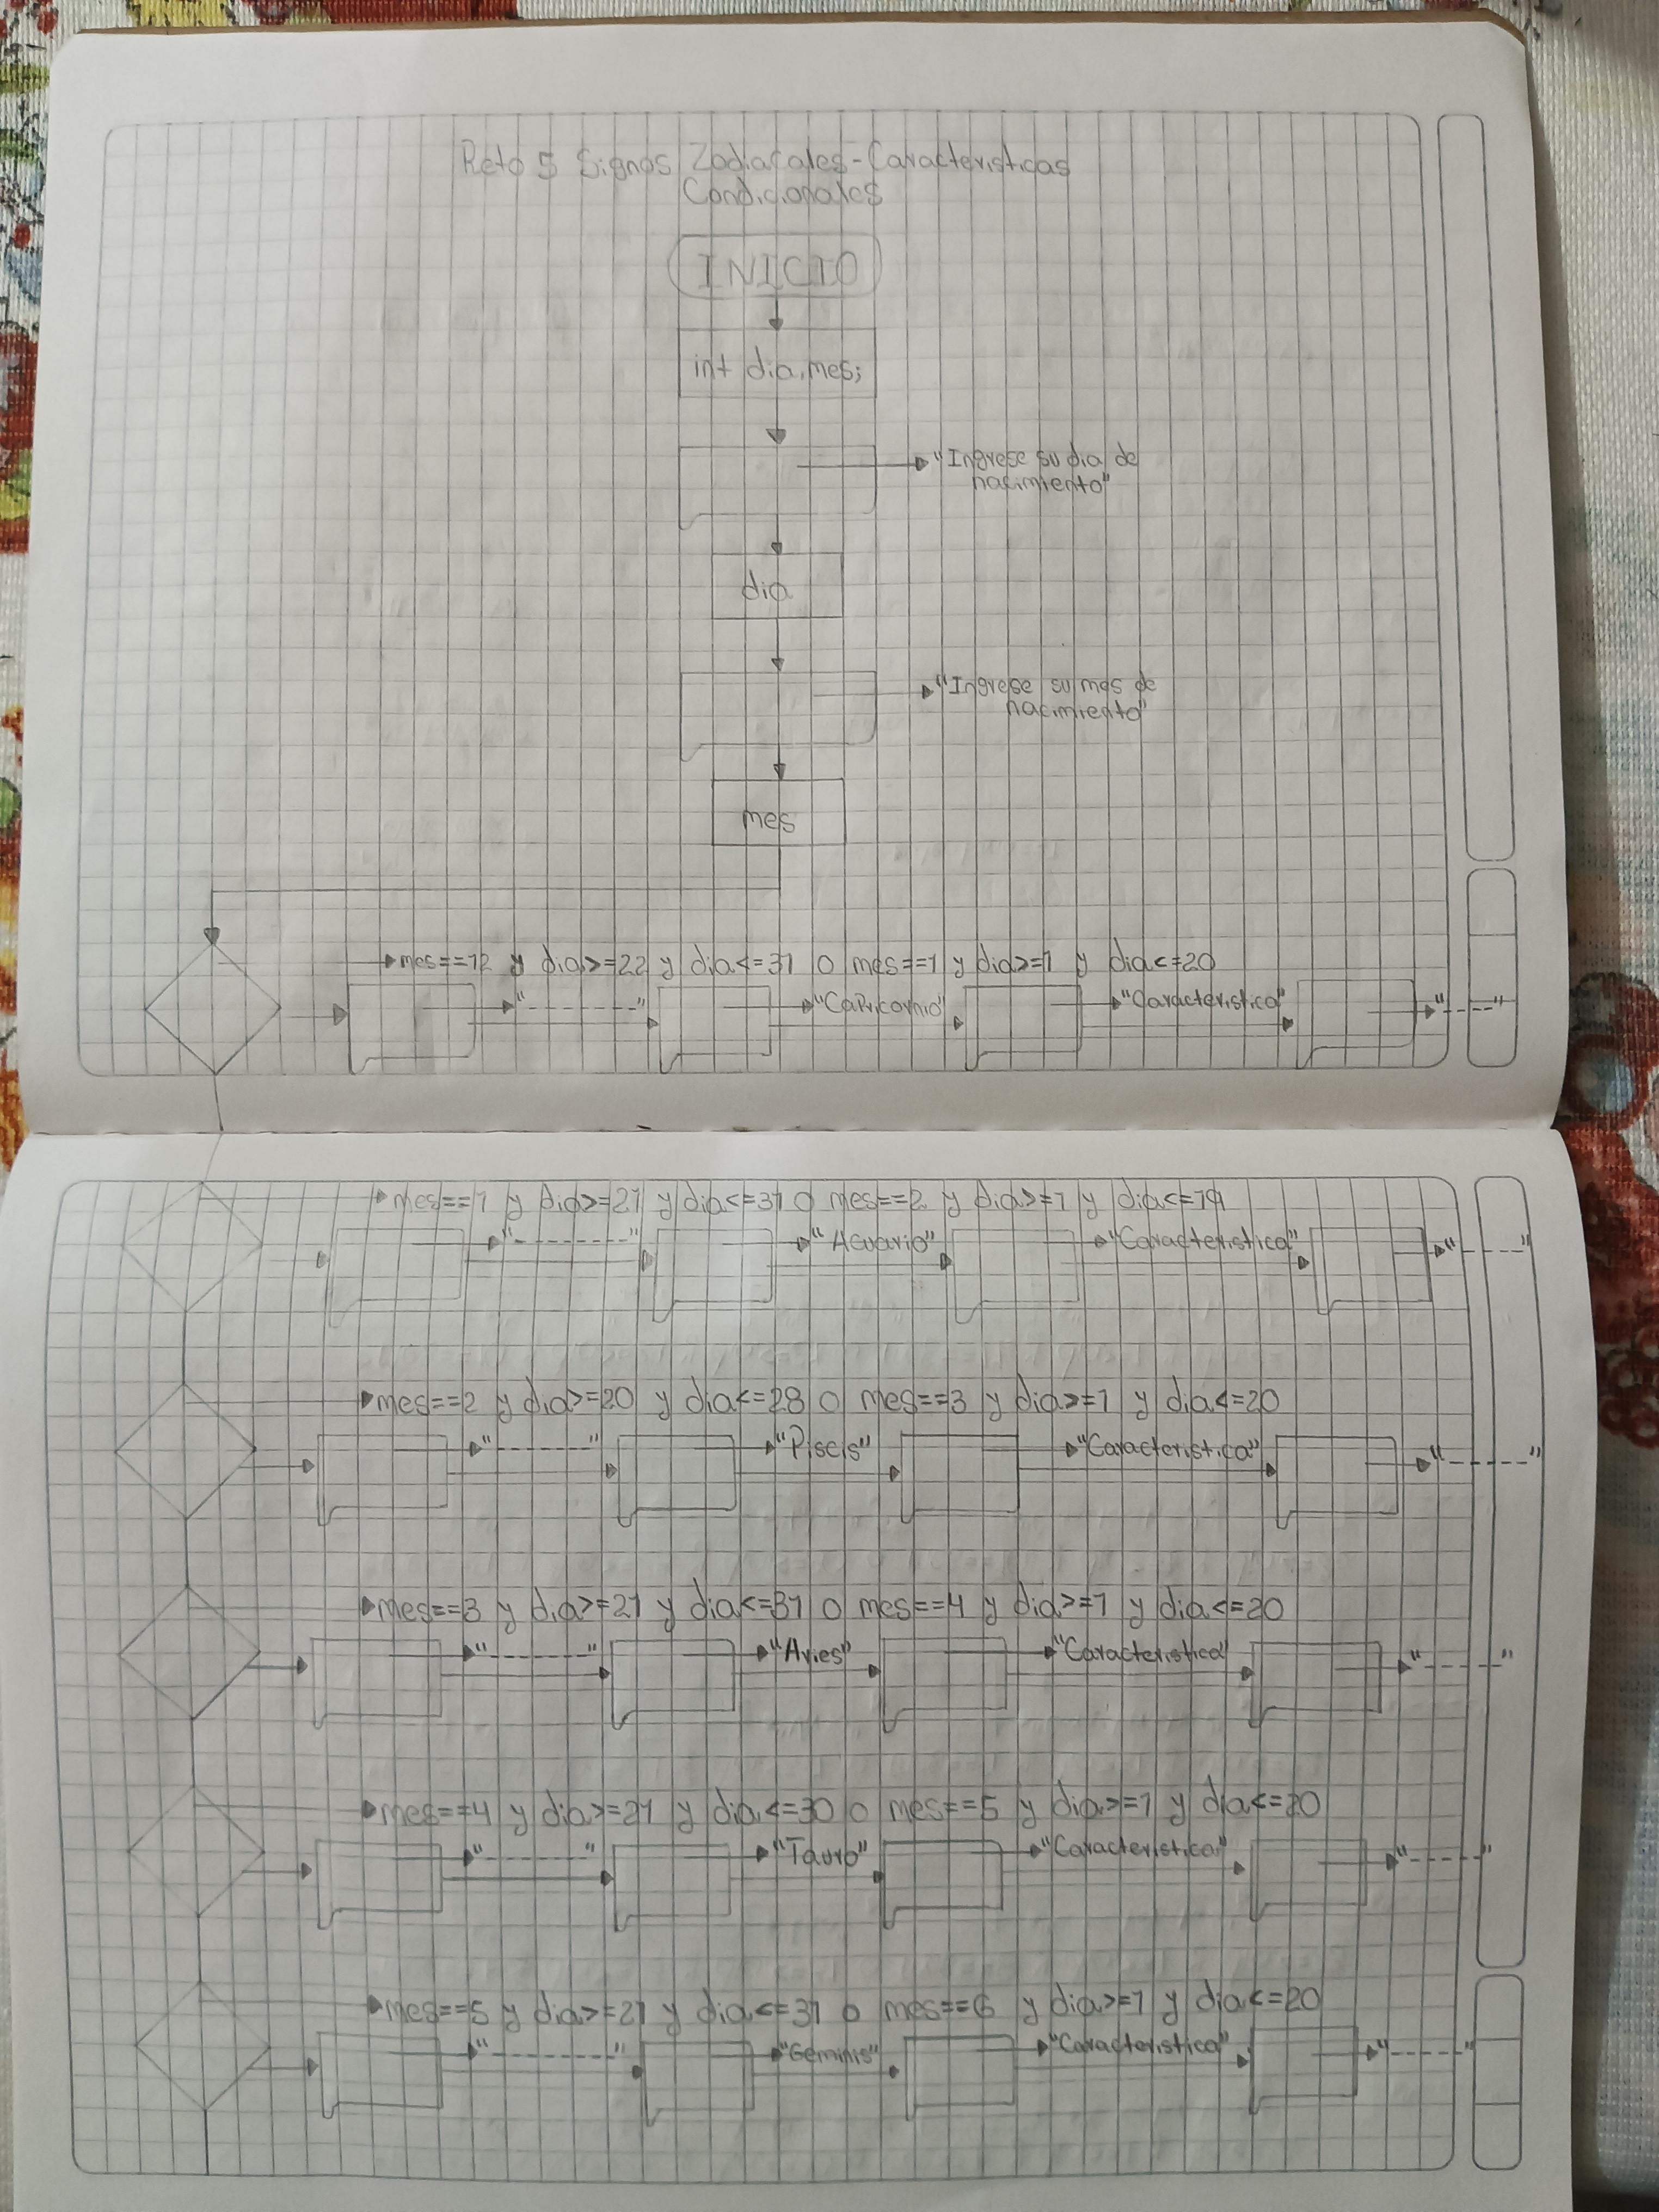 Reto 5 Signos Zodiacales-Caracteristicas
Condicionales
INICIO
int dia,mes;
"Ingrese su dia de
nacimiento"
dia
"Ingrese su mes de
nacimiento"
mes
mes==12 y dia>=22 y dia<=31 o mes==1 y dia>=1 y dia<=20
"-------" "Capricornio" "Caracteristica" "----"
mes==1 y dia>=21 y dia<=31 o mes==2 y dia>=1 y dia<=19
"-------" "Acuario" "Caracteristica" "----"
mes==2 y dia>=20 y dia<=28 o mes==3 y dia>=1 y dia<=20
"-------" "Piscis" "Caracteristica" "----"
mes==3 y dia>=21 y dia<=31 o mes==4 y dia>=1 y dia<=20
"-------" "Aries" "Caracteristica" "----"
mes==4 y dia>=21 y dia<=30 o mes==5 y dia>=1 y dia<=20
"-------" "Tauro" "Caracteristica" "----"
mes==5 y dia>=21 y dia<=31 o mes==6 y dia>=1 y dia<=20
"-------" "Geminis" "Caracteristica" "----"